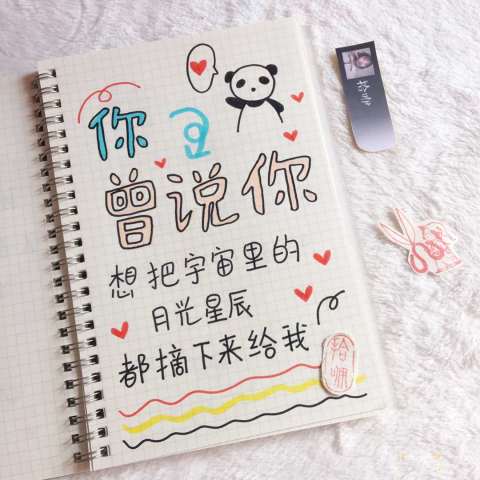 你
曾说你
想把宇宙里的
月光星辰
都摘下来给我